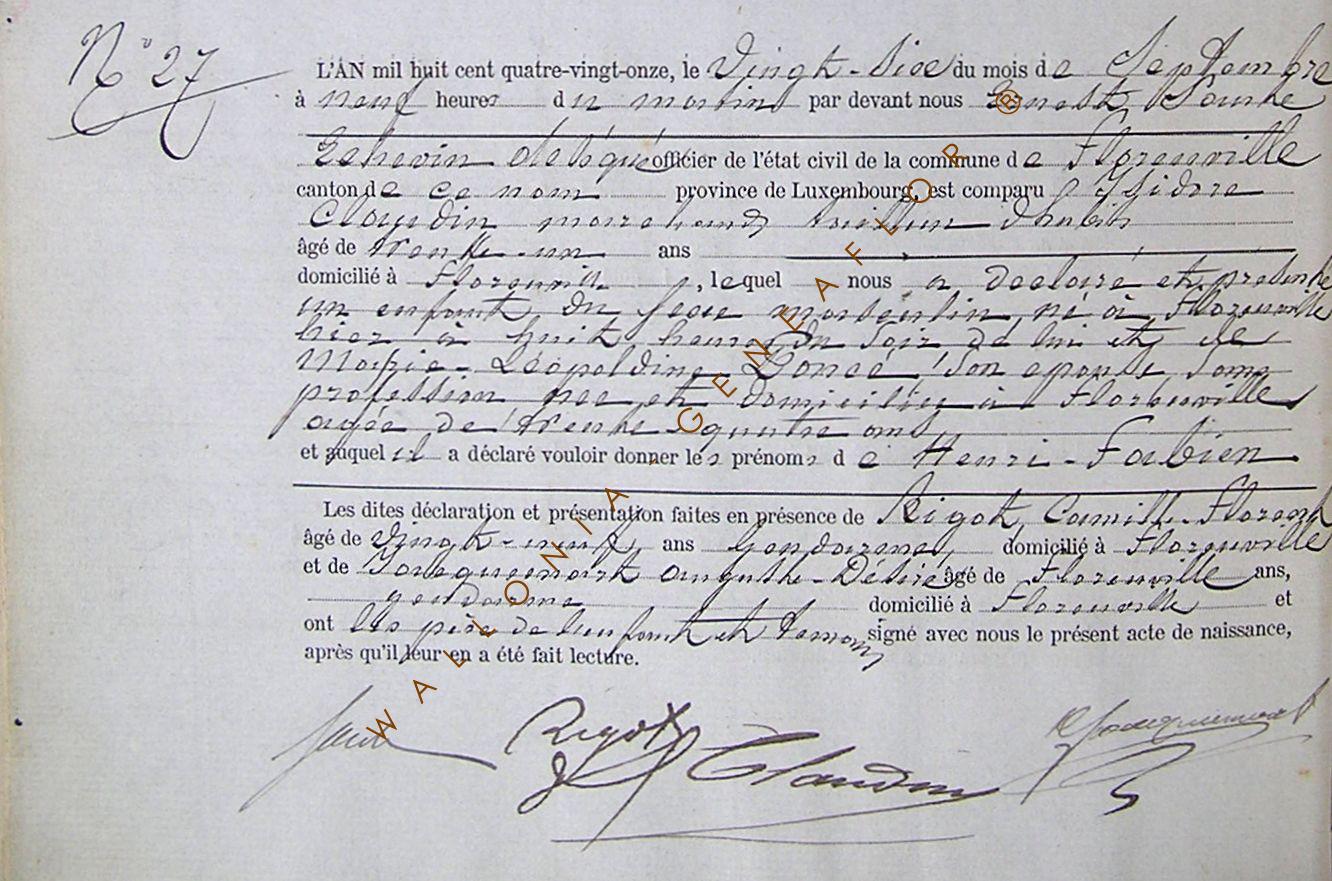 N° 27
L'AN mil huit cent quatre-vingt-onze, le Vingt-Six du mois de Septembre
à neuf heures du matin par devant nous Ernest
Echevin délégué officier de l'état civil de la commune de Florenville
canton de ce nom province de Luxembourg, est comparu Isidore
Claudin marchand tailleur d'habits
âgé de trente-un ans
domicilié à Florenville, lequel nous a déclaré et présenté
un enfant du sexe masculin né à Florenville
hier à huit heures du soir de lui et de
Marie-Léopoldine Goncé son épouse sans
profession née et domiciliée à Florenville
agée de trente-quatre ans
et auquel il a déclaré vouloir donner les prénoms de Henri-Fabien
Les dites déclaration et présentation faites en présence de Rigot, Camille-Florent
âgé de Vingt-neuf ans Gendarme, domicilié à Florenville
et de Jacquemart Auguste-Désiré âgé de Florenville ans,
gendarme domicilié à Florenville et
ont les père de l'enfant et témoins signé avec nous le présent acte de naissance,
après qu'il leur en a été fait lecture.
Rigot Claudin Jacquemart
WALLONIA GENEAFLOR ®